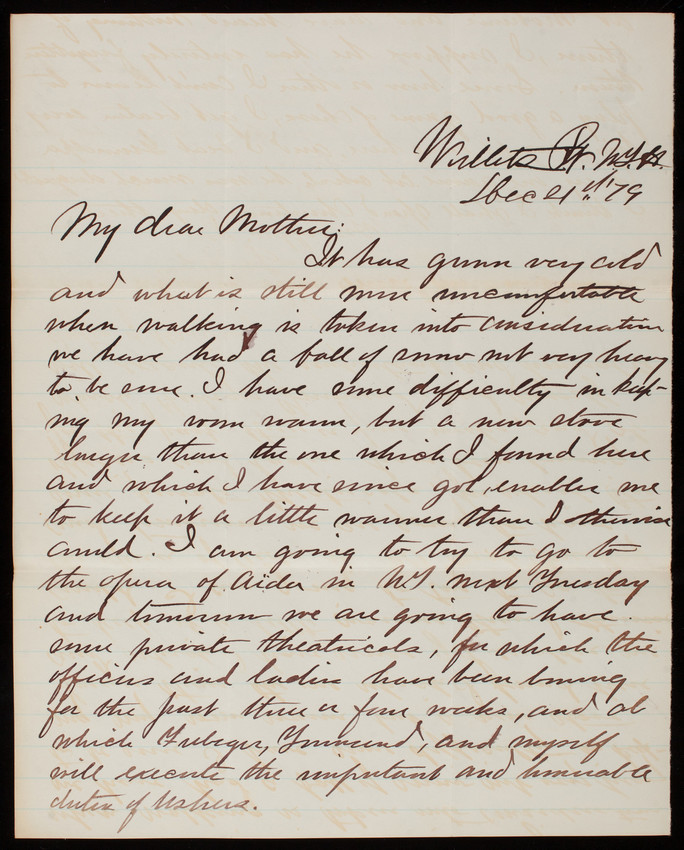 Willets Pt. N.Y.H.
Dec 21st '79
My dear Mother:
It has grown very cold
and what is still more uncomfortable
when walking is taken into consideration
we have had a fall of snow not very heavy
to be sure. I have some difficulty in keep-
ing my room warm, but a new stove
larger than the one which I found here
and which I have since got, enables me
to keep it a little warmer than I otherwise
could. I am going to try to go to
the opera of Aida in N.Y. next Tuesday
and tomorrow we are going to have
some private theatricals, for which the
officers and ladies have been
for the past three or four weeks, and at
which Townsend, and myself
will execute the important and honorable
duties of Ushers.